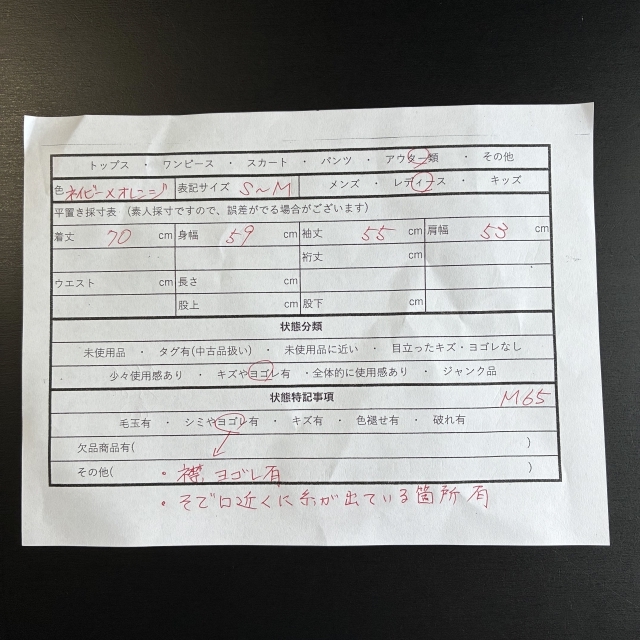 トップス ・ ワンピース ・ スカート ・ パンツ ・ アウター類 ・ その他
色 ネイビー×オレンジ 表記サイズ S～M メンズ ・ レディース ・ キッズ
平置き採寸表 （素人採寸ですので、誤差がでる場合がございます）
着丈 70 cm 身幅 59 cm 袖丈 55 cm 肩幅 53 cm
裄丈 cm
ウエスト cm 長さ cm
股上 cm 股下 cm
状態分類
未使用品 ・ タグ有(中古品扱い) ・ 未使用品に近い ・ 目立ったキズ・ヨゴレなし
少々使用感あり ・ キズやヨゴレ有 ・全体的に使用感あり ・ ジャンク品
状態特記事項 M65
毛玉有 ・ シミやヨゴレ有 ・ キズ有 ・ 色褪せ有 ・ 破れ有
欠品商品有( )
その他( ・襟、ヨゴレ有 )
・そで口近くに糸が出ている箇所 有